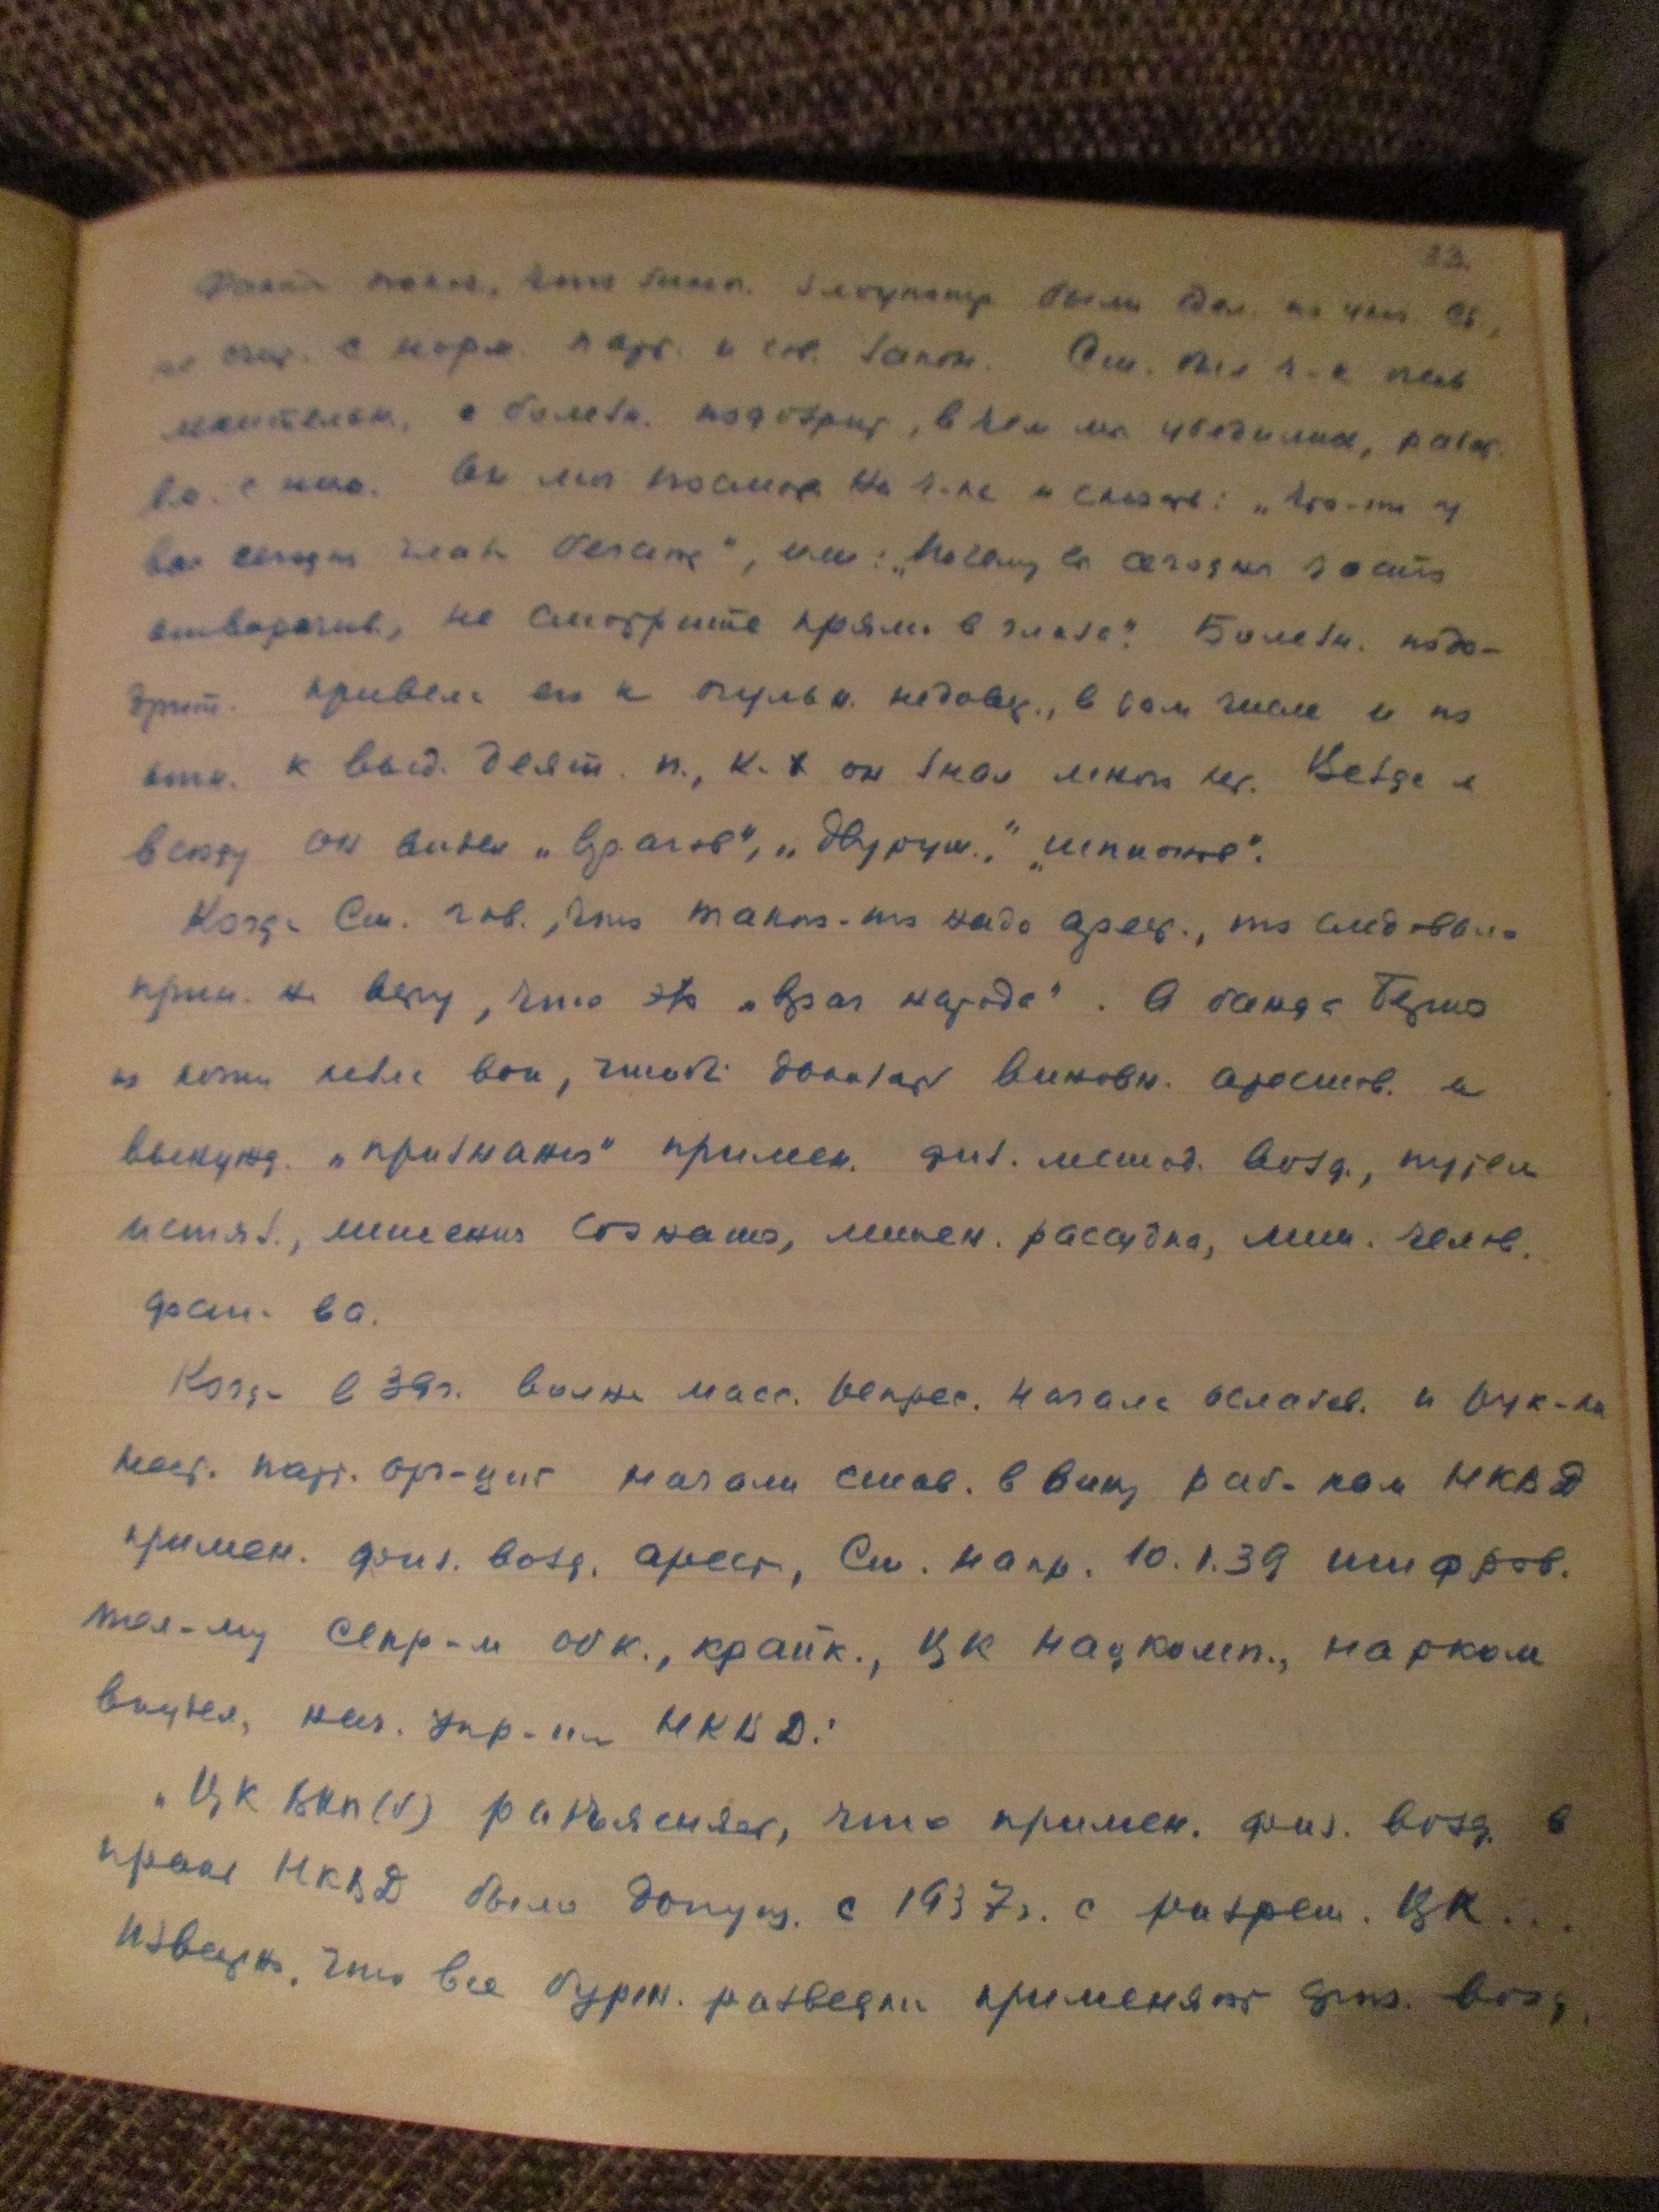 13.
были
с норм. парт. и сов. закон. Ст. был ч-к очень
мнительн., с болезн. подозрит, в чем мы убедились, работ.
с ним. Он мог посмотр на ч-ка и сказать: „что-то у
вас сегодня глаза бегают", или: „почему вы сегодня часто
отворачив., не смотрите прямо в глаза". Болезн. подо-
зрит. привела его к огульн. недовер., в том числе и по
отн. к выд. деят. п., к-х он знал много лет. Везде и
всюду он видел „врагов", „двуруш.", „шпионов".
Когда Ст. гов., что такого-то надо арест., то следовало
прин. на веру, что это „враг народа". А банда Берия
из кожи лезла вон, чтобы доказать виновн. арестов. и
вынужд. „признания" примен. физ. метод. возд., путем
истяз., лишения сознания, лишен. рассудка, лиш. челов.
дост-ва.
Когда в 39г. волна масс. репрес. начала ослабев. и рук-ли
мест. парт. орг-ций начали став. в вину раб-кам НКВД
примен. физ. возд. арест, Ст. напр. 10.1.39 шифров.
тел-му секр-м обк., крайк., ЦК нацкомп., нарком
внутдел, нач. упр-ий НКВД:
„ЦК ВКП(б) разъясняет, что примен. физ. возд. в
практ НКВД было допущ. с 1937г. с разреш. ЦК...
Известно, что все бурж. разведки применяют физ. возд.